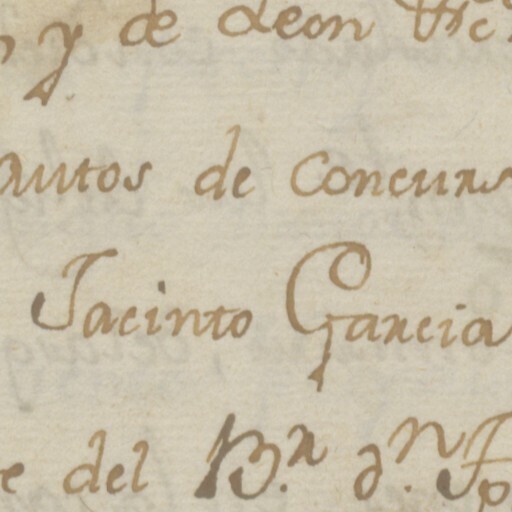 y de Leon
autos de Concurs
Jacinto Garcia
e del B.r d.n